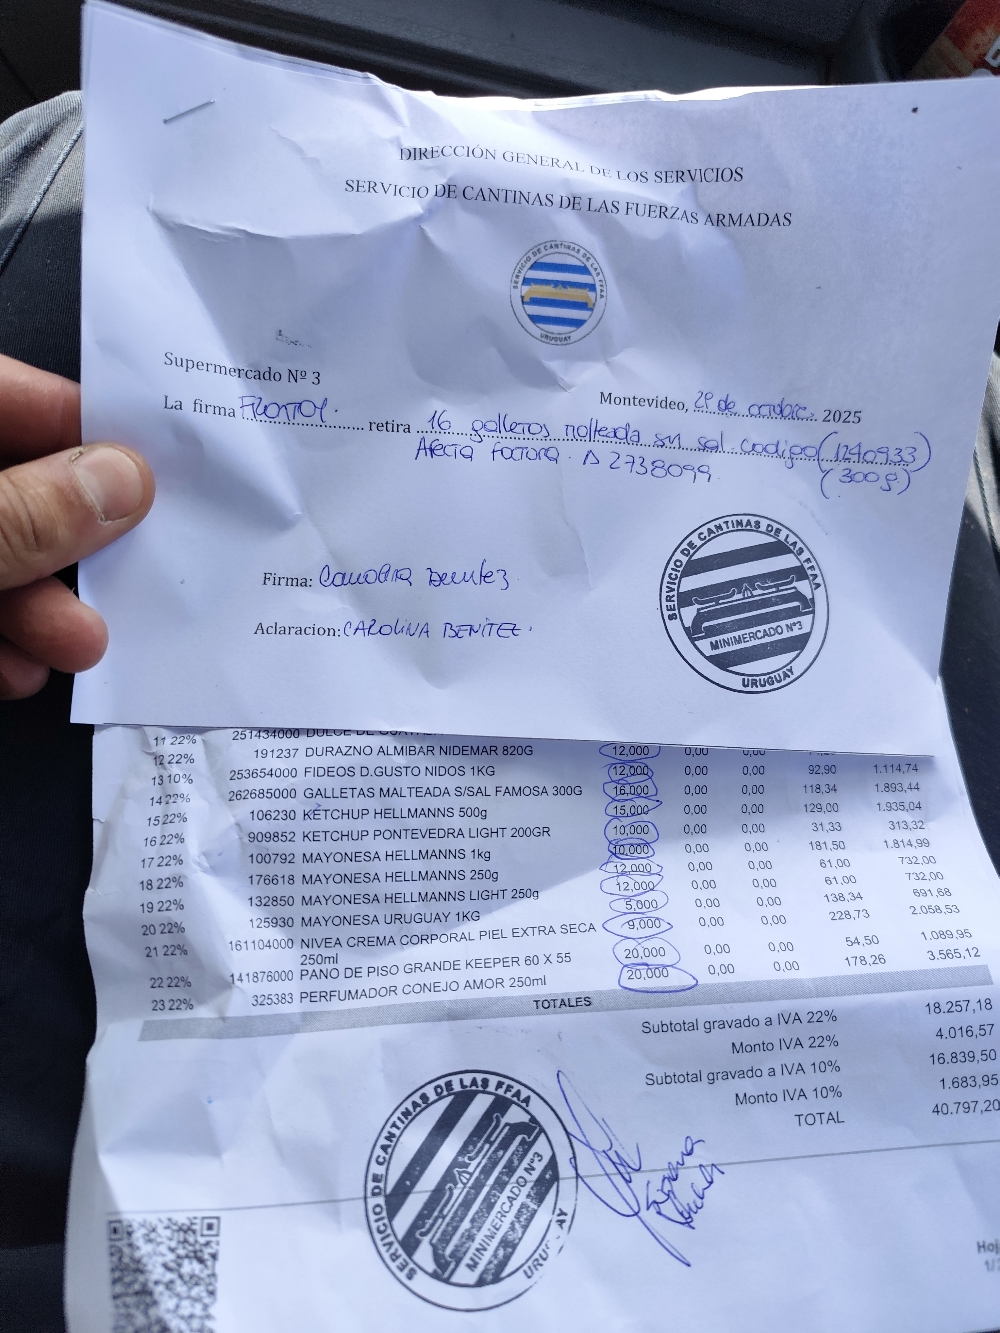 DIRECCIÓN GENERAL DE LOS SERVICIOS
SERVICIO DE CANTINAS DE LAS FUERZAS ARMADAS
SERVICIO DE CANTINAS DE LAS FFAA
URUGUAY
Supermercado Nº 3
Montevideo, 29 de octubre. 2025
La firma retira 16 galletas malteada sin sal codigo (1240933)
Afecta factura. A 2738099 (300g)
SERVICIO DE CANTINAS DE LAS FFAA
MINIMERCADO Nº3
URUGUAY
Firma: Carolina Benitez
Aclaracion: CAROLINA BENITEZ.
11 22% 251434000 DULCE DE
12 22% 191237 DURAZNO ALMIBAR NIDEMAR 820G 12,000 0,00 0,00
13 10% 253654000 FIDEOS D.GUSTO NIDOS 1KG 12,000 0,00 0,00 92,90 1.114,74
14 22% 262685000 GALLETAS MALTEADA S/SAL FAMOSA 300G 16,000 0,00 0,00 118,34 1.893,44
15 22% 106230 KETCHUP HELLMANNS 500g 15,000 0,00 0,00 129,00 1.935,04
16 22% 909852 KETCHUP PONTEVEDRA LIGHT 200GR 10,000 0,00 0,00 31,33 313,32
17 22% 100792 MAYONESA HELLMANNS 1kg 10,000 0,00 0,00 181,50 1.814,99
18 22% 176618 MAYONESA HELLMANNS 250g 12,000 0,00 0,00 61,00 732,00
19 22% 132850 MAYONESA HELLMANNS LIGHT 250g 12,000 0,00 0,00 61,00 732,00
20 22% 125930 MAYONESA URUGUAY 1KG 5,000 0,00 0,00 138,34 691,68
21 22% 161104000 NIVEA CREMA CORPORAL PIEL EXTRA SECA 9,000 0,00 0,00 228,73 2.058,53
250ml
22 22% 141876000 PANO DE PISO GRANDE KEEPER 60 X 55 20,000 0,00 0,00 54,50 1.089,95
23 22% 325383 PERFUMADOR CONEJO AMOR 250ml 20,000 0,00 0,00 178,26 3.565,12
TOTALES
Subtotal gravado a IVA 22% 18.257,18
Monto IVA 22% 4.016,57
Subtotal gravado a IVA 10% 16.839,50
Monto IVA 10% 1.683,95
TOTAL 40.797,20
SERVICIO DE CANTINAS DE LAS FFAA
MINIMERCADO Nº3
Hoj